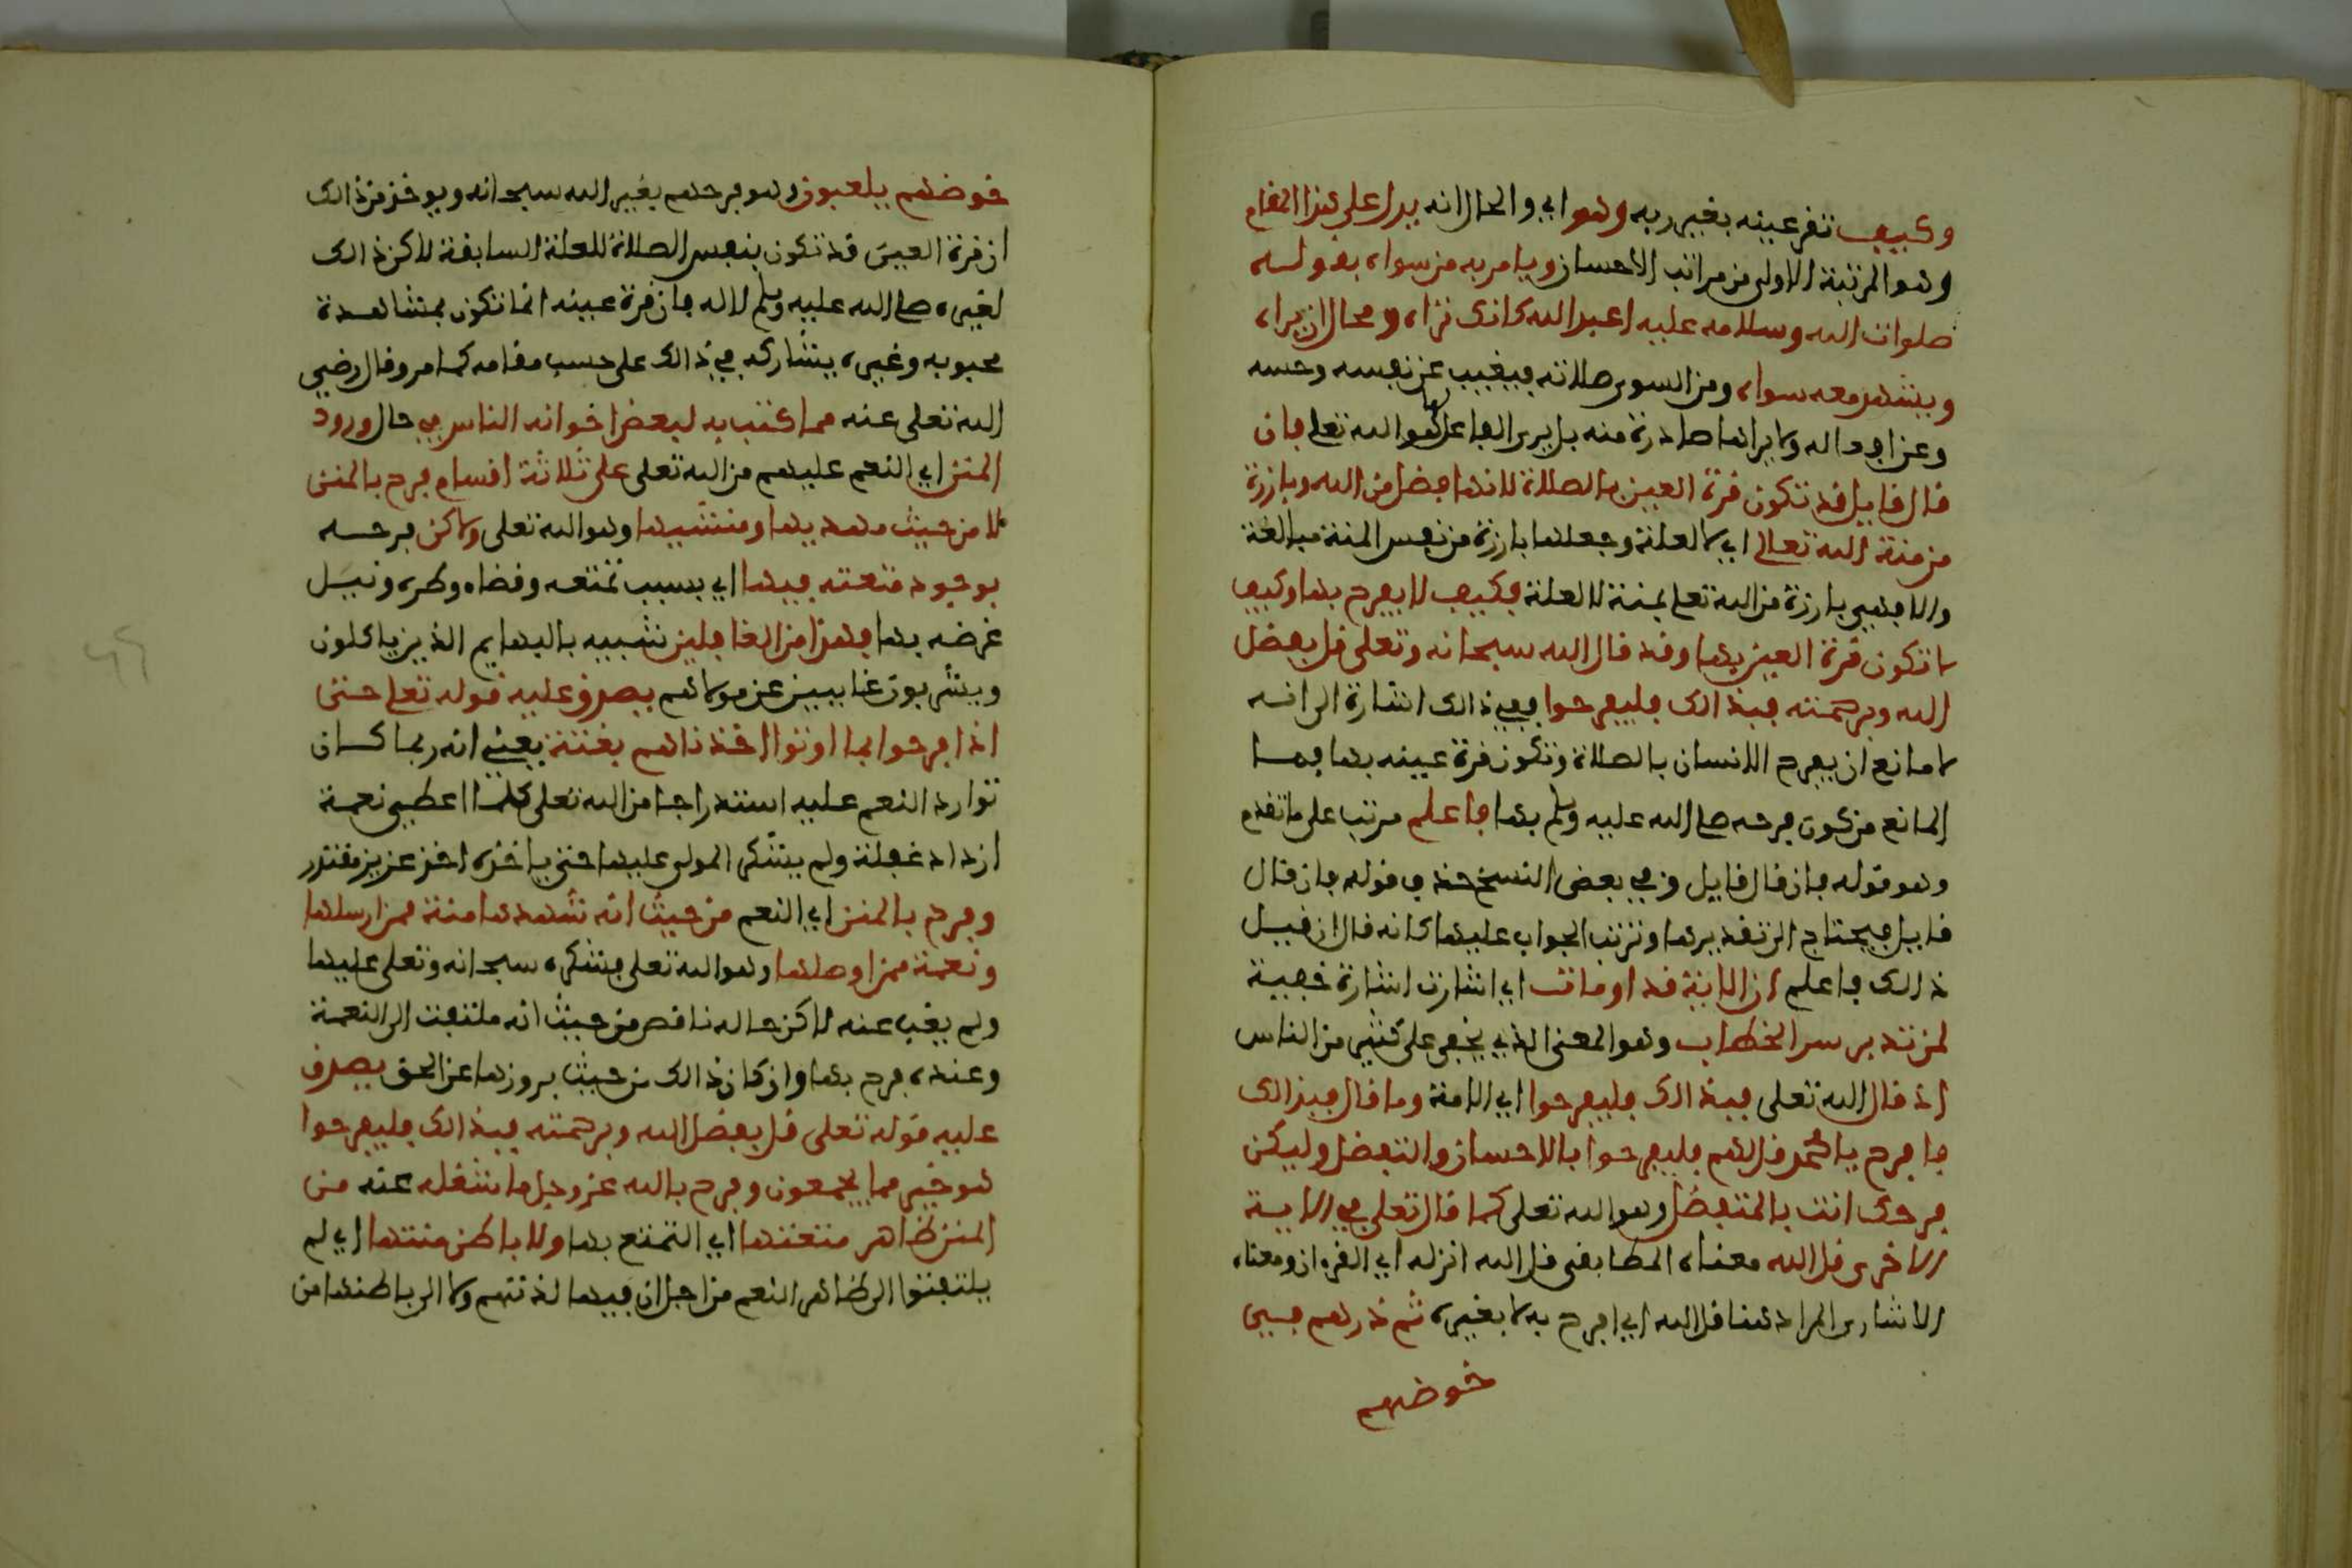 وكيف تقر عينه بغير ربه وهو اي والحال انه يدل على هذا المقام
وهو المرتبة الاولى من مراتب الاحسان ويامر به من سواه بقوله
صلوات الله وسلامه عليه اعبد الله كانك تراه ومحال ان يراه
ويشهد معه سواه ومن السوى صلاته فيغيب عن نفسه وحسه
وعن افعاله ولا يراها صادرة منه بل يرى الفاعل لها هو الله تعلى فان
قال قايل قد تكون قرة العين بالصلاة لانها فضل من الله وبارزة
من منة الله تعالى اي لا لعلة وجعلها بارزة من نفس المنة مبالغة
والا فهي بارزة من الله تعلى بمنة لا لعلة فكيف لا يفرح بها وكيف
لا تكون قرة العين بها وقد قال الله سبحانه وتعلى قل بفضل
الله وبرحمته فبذالك فليفرحوا ففي ذالك اشارة الى انه
لا مانع ان يفرح الانسان بالصلاة وتكون قرة عينه بها فما
المانع من كون فرحه صلى الله عليه وسلم بها فاعلم مرتب على ما تقدم
وهو قوله فان قال قايل وفي بعض النسخ حذف قوله فان قال
قايل فيحتاج الى تقديرها وترتب الجواب عليها كانه قال ان قيل
ذالك فاعلم ان الاية قد اومات اي اشارت اشارة خفية
لمن تدبر سر الخطاب وهو المعنى الذي يخفى على كثير من الناس
اذ قال الله تعلى فبذالك فليفرحوا اي الامة وما قال فبذالك
فافرح يا محمد قل لهم فليفرحوا بالاحسان والتفضل وليكن
فرحك انت بالمتفضل وهو الله تعلى كما قال تعلى في الاية
الاخرى قل الله معناه المطابقي قل الله انزله اي القرءان ومعناه
الاشاري المراد هنا قل الله اي افرح به لا بغيره ثم ذرهم في
خوضهم
خوضهم يلعبون وهو فرحهم بغير الله سبحانه ويوخذ من ذالك
ان قرة العين قد تكون بنفس الصلاة للعلة السابقة لاكن ذالك
لغيره صلى الله عليه وسلم لا له فان قرة عينه انما تكون بمشاهدة
محبوبه وغيره يشاركه في ذالك على حسب مقامه كما مر وقال رضي
الله تعلى عنه مما كتب به لبعض اخوانه الناس في حال ورود
المنن اي النعم عليهم من الله تعلى على ثلاثة اقسام فرح بالمنن
لا من حيث مهديها ومنشيها وهو الله تعلى ولاكن فرحه
بوجود متعته فيها اي بسبب تمتعه وقضاه وطره ونيل
غرضه بها فهذا من الغافلين شبيه بالبهايم الذين ياكلون
ويشربون غايبين عن مولاهم يصدق عليه قوله تعلى حتى
اذا فرحوا بما اوتوا اخذناهم بغتة يعني انه ربما كان
توارد النعم عليه استدراجا من الله تعلى كلما اعطي نعمة
ازداد غفلة ولم يشكر المولى عليها حتى ياخذه اخذ عزيز مقتدر
وفرح بالمنن اي النعم من حيث انه شهدها منة ممن ارسلها
ونعمة ممن اوصلها وهو الله تعلى فشكره سبحانه وتعلى عليها
ولم يغب عنه لاكن حاله ناقص من حيث انه ملتفت الى النعمة
وعنده فرح بها وان كان ذالك من حيث بروزها عن الحق يصدق
عليه قوله تعلى قل بفضل الله وبرحمته فبذالك فليفرحوا
هو خير مما يجمعون وفرح بالله عز وجل ما شغله عنه من
المنن ظاهر متعتها اي التمتع بها ولا باطن منتها اي لم
يلتفتوا الى ظاهر النعم من اجل ان فيها لذتهم ولا الى باطنها من